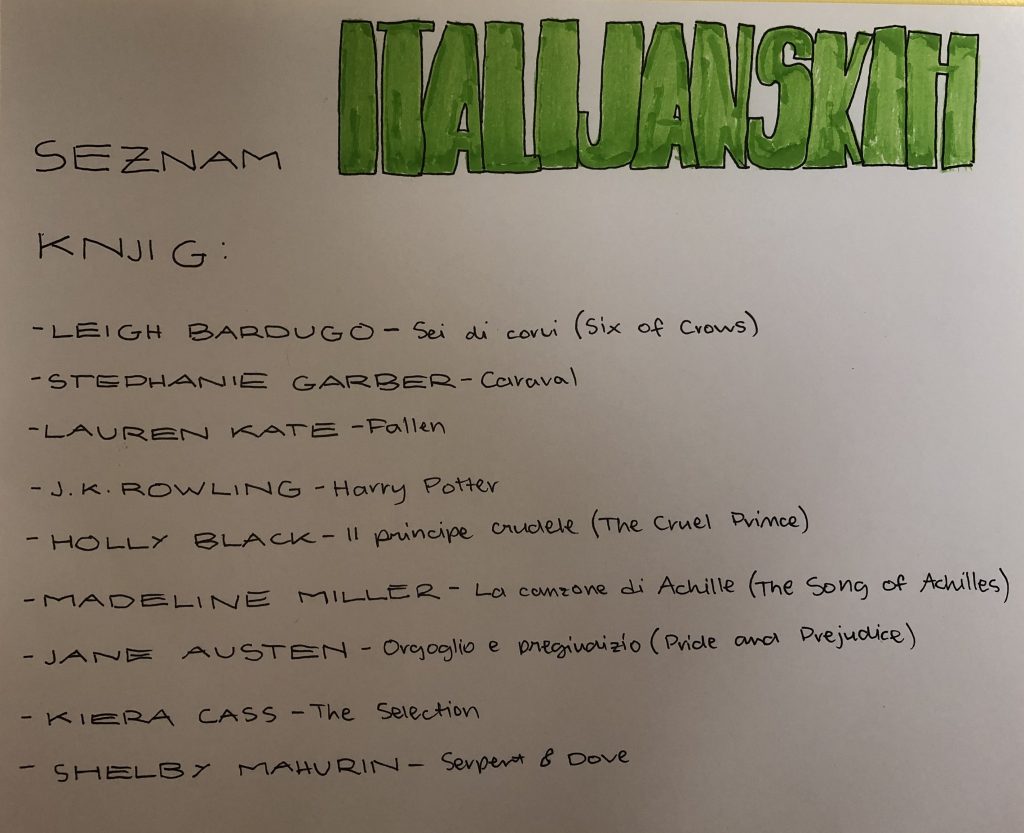 SEZNAM ITALIJANSKIH
KNJIG:
- LEIGH BARDUGO - Sei di corvi (Six of Crows)
- STEPHANIE GARBER - Caraval
- LAUREN KATE - Fallen
- J.K. ROWLING - Harry Potter
- HOLLY BLACK - Il principe crudele (The Cruel Prince)
- MADELINE MILLER - La canzone di Achille (The Song of Achilles)
- JANE AUSTEN - Orgoglio e pregiudizio (Pride and Prejudice)
- KIERA CASS - The Selection
- SHELBY MAHURIN - Serpent & Dove